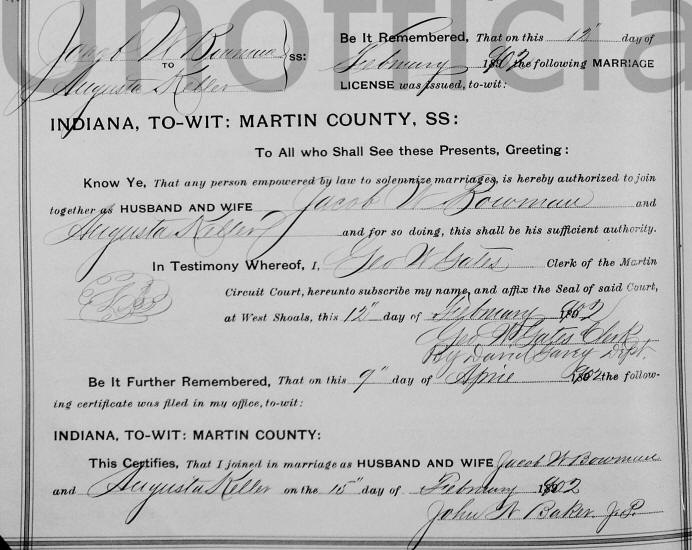 unofficial
Jacob W Bowman
TO
Augusta Keller
SS:
Be It Remembered, That on this 12" day of
February 1902 the following MARRIAGE
LICENSE was issued, to-wit:
INDIANA, TO-WIT: MARTIN COUNTY, SS:
To All who Shall See these Presents, Greeting:
Know Ye, That any person empowered by law to solemnize marriages, is hereby authorized to join
together as HUSBAND AND WIFE Jacob W Bowman and
Augusta Keller and for so doing, this shall be his sufficient authority.
In Testimony Whereof, I, Geo W Gates Clerk of the Martin
Circuit Court, hereunto subscribe my name, and affix the Seal of said Court,
at West Shoals, this 12" day of February 1902
Geo W Gates Clerk
By Dept.
Be It Further Remembered, That on this 9" day of April 1902 the follow-
ing certificate was filed in my office, to-wit:
INDIANA, TO-WIT: MARTIN COUNTY:
This Certifies, That I joined in marriage as HUSBAND AND WIFE Jacob W Bowman
and Augusta Keller on the 15" day of February 1902
John N Baker J.P.